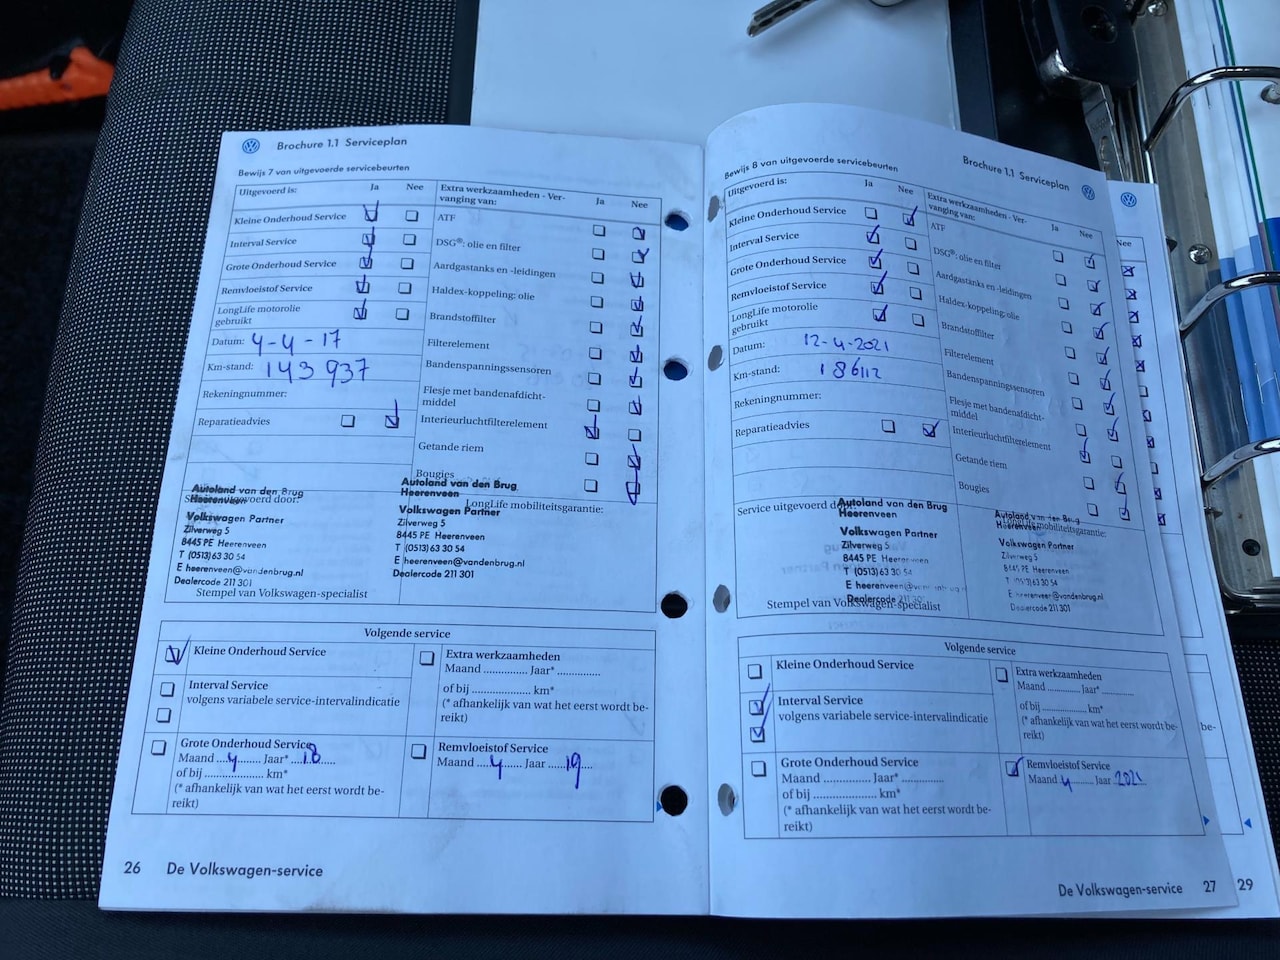 Brochure 1.1 Serviceplan
Bewijs 7 van uitgevoerde servicebeurten
Uitgevoerd is: Ja Nee
Kleine Onderhoud Service
Interval Service
Grote Onderhoud Service
Remvloeistof Service
LongLife motorolie
gebruikt
Datum: 4-4-17
Km-stand: 143 937
Rekeningnummer:
Reparatieadvies
Extra werkzaamheden - Ver-
vanging van: Ja Nee
ATF
DSG®: olie en filter
Aardgastanks en -leidingen
Haldex-koppeling: olie
Brandstoffilter
Filterelement
Bandenspanningssensoren
Flesje met bandenafdicht-
middel
Interieurluchtfilterelement
Getande riem
Bougies
LongLife mobiliteitsgarantie:
Autoland van den Brug
Heerenveen
Volkswagen Partner
Zilverweg 5
8445 PE Heerenveen
T (0513) 63 30 54
E heerenveen@vandenbrug.nl
Dealercode 211 301
Stempel van Volkswagen-specialist
Autoland van den Brug
Heerenveen
Volkswagen Partner
Zilverweg 5
8445 PE Heerenveen
T (0513) 63 30 54
E heerenveen@vandenbrug.nl
Dealercode 211 301
Volgende service
Kleine Onderhoud Service
Interval Service
volgens variabele service-intervalindicatie
Grote Onderhoud Service
Maand ...4....... Jaar* ...18.....
of bij ...................... km*
(* afhankelijk van wat het eerst wordt be-
reikt)
Extra werkzaamheden
Maand .............. Jaar* ..............
of bij .................... km*
(* afhankelijk van wat het eerst wordt be-
reikt)
Remvloeistof Service
Maand ....4..... Jaar .....19....
26 De Volkswagen-service
Brochure 1.1 Serviceplan
Bewijs 8 van uitgevoerde servicebeurten
Uitgevoerd is: Ja Nee
Kleine Onderhoud Service
Interval Service
Grote Onderhoud Service
Remvloeistof Service
LongLife motorolie
gebruikt
Datum: 12-4-2021
Km-stand: 186112
Rekeningnummer:
Reparatieadvies
Service uitgevoerd door:
Extra werkzaamheden - Ver-
vanging van: Ja Nee
ATF
DSG®: olie en filter
Aardgastanks en -leidingen
Haldex-koppeling: olie
Brandstoffilter
Filterelement
Bandenspanningssensoren
Flesje met bandenafdicht-
middel
Interieurluchtfilterelement
Getande riem
Bougies
LongLife mobiliteitsgarantie:
Autoland van den Brug
Heerenveen
Volkswagen Partner
Zilverweg 5
8445 PE Heerenveen
T (0513) 63 30 54
E heerenveen@vandenbrug.nl
Dealercode 211 301
Stempel van Volkswagen-specialist
Autoland van den Brug
Heerenveen
Volkswagen Partner
Zilverweg 5
8445 PE Heerenveen
T (0513) 63 30 54
E heerenveen@vandenbrug.nl
Dealercode 211 301
Volgende service
Kleine Onderhoud Service
Interval Service
volgens variabele service-intervalindicatie
Grote Onderhoud Service
Maand .............. Jaar* ..............
of bij ...................... km*
(* afhankelijk van wat het eerst wordt be-
reikt)
Extra werkzaamheden
Maand .............. Jaar* ..............
of bij .................... km*
(* afhankelijk van wat het eerst wordt be-
reikt)
Remvloeistof Service
Maand ...4..... Jaar 2021
De Volkswagen-service 27
Nee
be-
29